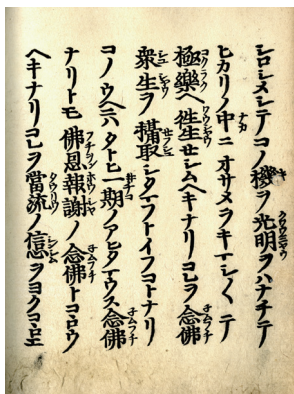 シロシメシテコノ機ヲ光明ヲハナチテ
ヒカリノ中ニオサメヲキマシ〱テ
極樂ヘ往生セシムヘキナリコレヲ念佛
衆生ヲ攝取シタマフトイフコトナリ
コノウヘニハタトヒ一期ノアヒタマウス念佛
ナリトモ佛恩報謝ノ念佛トコヽロウ
ヘキナリコレヲ當流ノ信心ヲヨクコヽロ